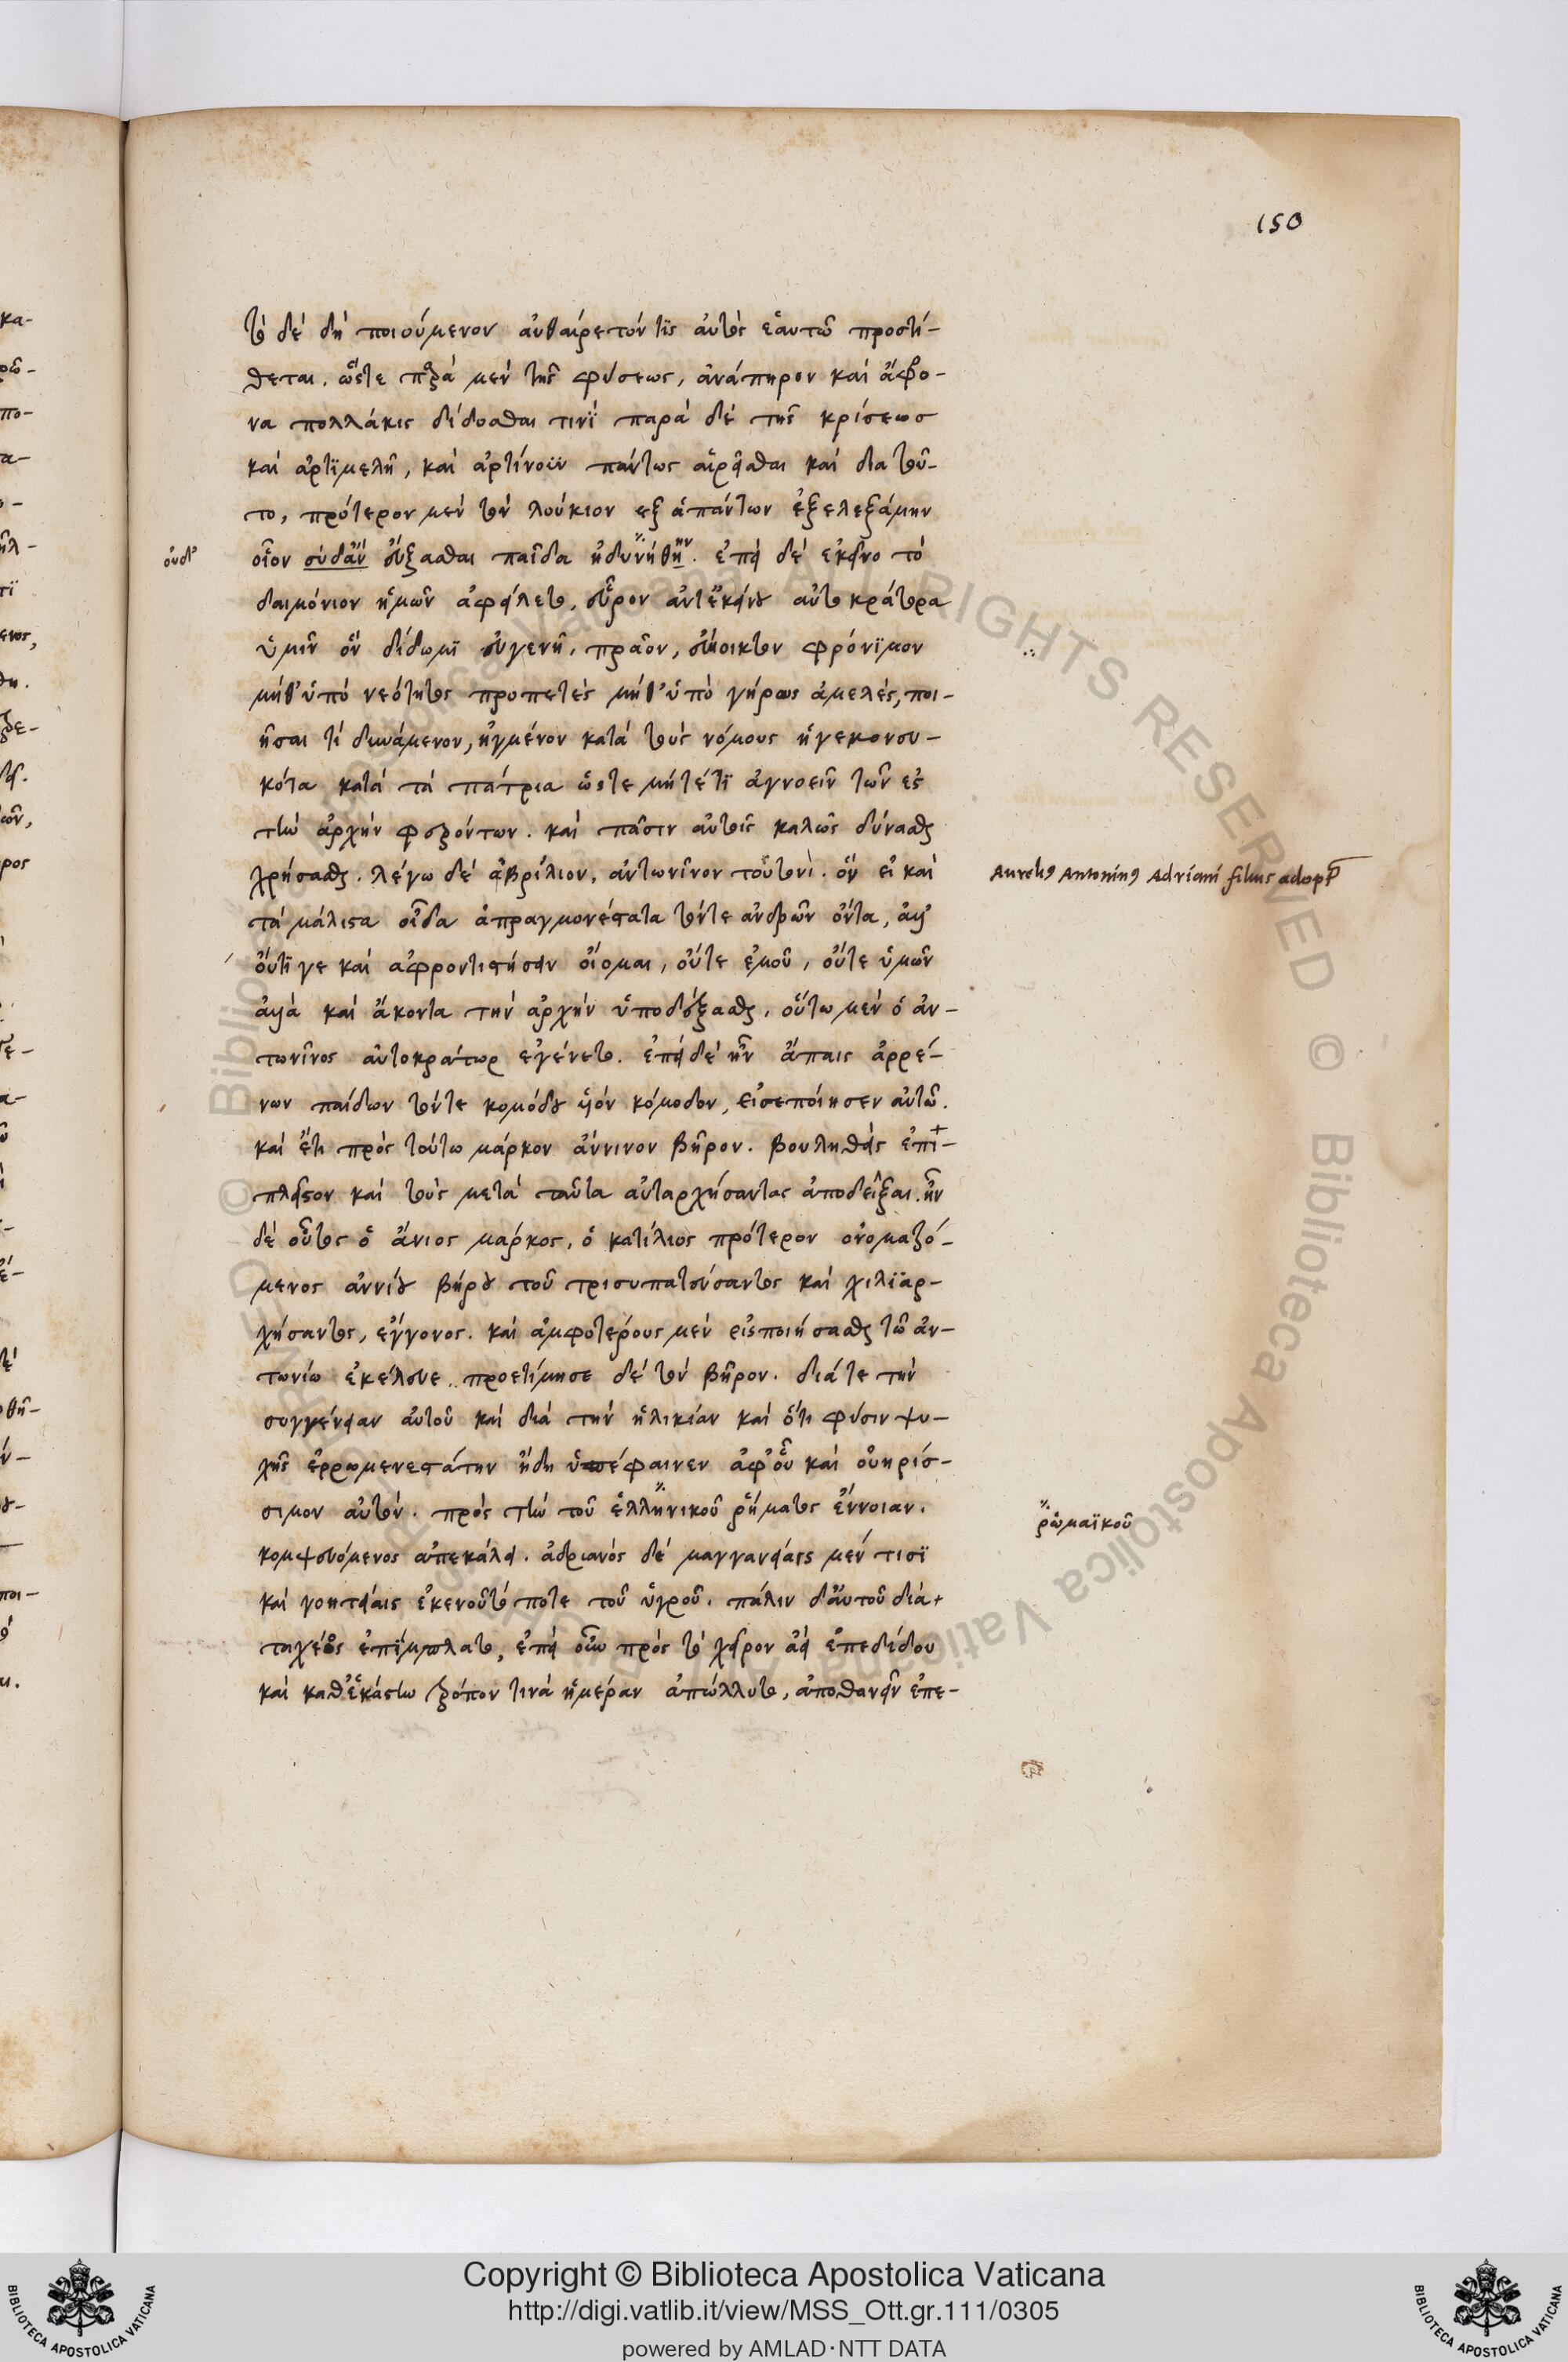 150
τὸ δὲ δὴ ποιούμενον αὐθαίρετόν τϊς αὐτὸς ἑαυτῶ προστί-
θεται. ὥστε παρὰ μὲν τῆς φύσεως, ἀνάπηρον καὶ ἄφρο-
να πολλάκις δίδοσθαι τινϊ παρὰ δὲ τῆς κρίσεως
καὶ ἀρτϊμελῆ, καὶ ἀρτίνοϋν πάντως αἱρεῖσθαι καὶ δια τοῦ-
το, πρότερον μὲν τὸν λούκιον εξ ἁπάντων ἐξελεξάμην
οὐδ'
οἷον οὐδἂν εὔξασθαι παῖδα ἠδυνήθην. ἐπεὶ δὲ ἐκεῖνο τὸ
δαιμόνιον ἡμῶν ἀφείλετο, εὗρον ἀντἐκείνου αὐτοκράτορα
ὑμῖν ὃν δίδωμϊ εὐγενῆ, πρᾶον, εὐήοικτον φρόνϊμον
μήθ' ὑπὸ νεότητος προπετὲς μήθ' ὑπὸ γήρως ἀμελὲς, ποι-
ῆσαι τί δυνάμενον, ἠγμένον κατὰ τοὺς νόμους ἡγεμονευ-
κότα κατὰ τὰ πάτρια ὥστε μήτέτϊ ἀγνοεῖν τῶν ἐς
τὴν ἀρχὴν φερόντων. καὶ πᾶσιν αὐτοῖς καλῶς δύνασθαι
χρήσασθαι. λέγω δὲ ἀβρίλιον, ἀντωνῖνον τοῦτονὶ. ὃν εἰ καὶ
Aurelius Antoninus Adriani filius adopt
τὰ μάλιστα οἶδα ἀπραγμονέστατα τόντε ἀνδρῶν ὄντα, ἀλλ'
οὔτϊ γε καὶ ἀφροντιστήσειν οἴομαι, οὔτε ἐμοῦ, οὔτε ὑμῶν
ἀλλὰ καὶ ἄκοντα τὴν ἀρχὴν ὑποδέξασθαι. οὕτω μὲν ὁ ἀν-
τωνῖνος αὐτοκράτωρ ἐγένετο. ἐπεὶ δὲ ἦν ἄπαις ἀρρέ-
νων παίδων τόντε κομόδου υἱὸν κόμοδον, εἰσεποίησεν αὐτῶ.
καὶ ἔτι πρὸς τούτω μάρκον ἄννινον βῆρον. βουληθεὶς ἐπι-
πλεῖστον καὶ τοὺς μετὰ ταῦτα αὐταρχήσαντας ἀποδεῖξαι. ἦν
δὲ οὗτος ὁ ἄνιος μάρκος, ὁ κατίλιος πρότερον ονομαζό-
μενος ἀννίου βήρου τοῦ τρισυπατεύσαντος καὶ χιλϊαρ-
χήσαντος, ἔγγονος. καὶ ἀμφοτέρους μὲν εἰσποιήσασθαι τῶ ἀν-
τωνίω ἐκέλευε. προετίμησε δὲ τὸν βῆρον. διά τε τὴν
συγγένειαν αὐτοῦ καὶ διὰ τὴν ἡλικίαν καὶ ὅτι φύσιν ψυ-
χῆς ἐρρωμενεστάτην ἤδη ὑπέφαινεν ἀφ' οὗ καὶ οὐηρίσ-
σιμον αὐτὸν. πρὸς τὴν τοῦ ἑλληνικοῦ ῥήματος ἔννοιαν.
ῥωμαϊκοῦ
κομψευόμενος ἀπεκάλει. ἀδριανὸς δὲ μαγγανείαις μέν τισϊ
καὶ γοητείαις ἐκενοῦτό ποτε τοῦ ὑγροῦ. πάλιν δ' αὐτοῦ διὰ
ταχέος ἐπϊμπλατο, ἐπεὶ οὖν πρὸς τὸ χεῖρον ἀεὶ ἐπεδίδου
καὶ καθἑκάστω τρόπον τινὰ ἡμέραν ἀπώλλυτο, ἀποθανεῖν ἐπε-
Copyright © Biblioteca Apostolica Vaticana
http://digi.vatlib.it/view/MSS_Ott.gr.111/0305
powered by AMLAD·NTT DATA